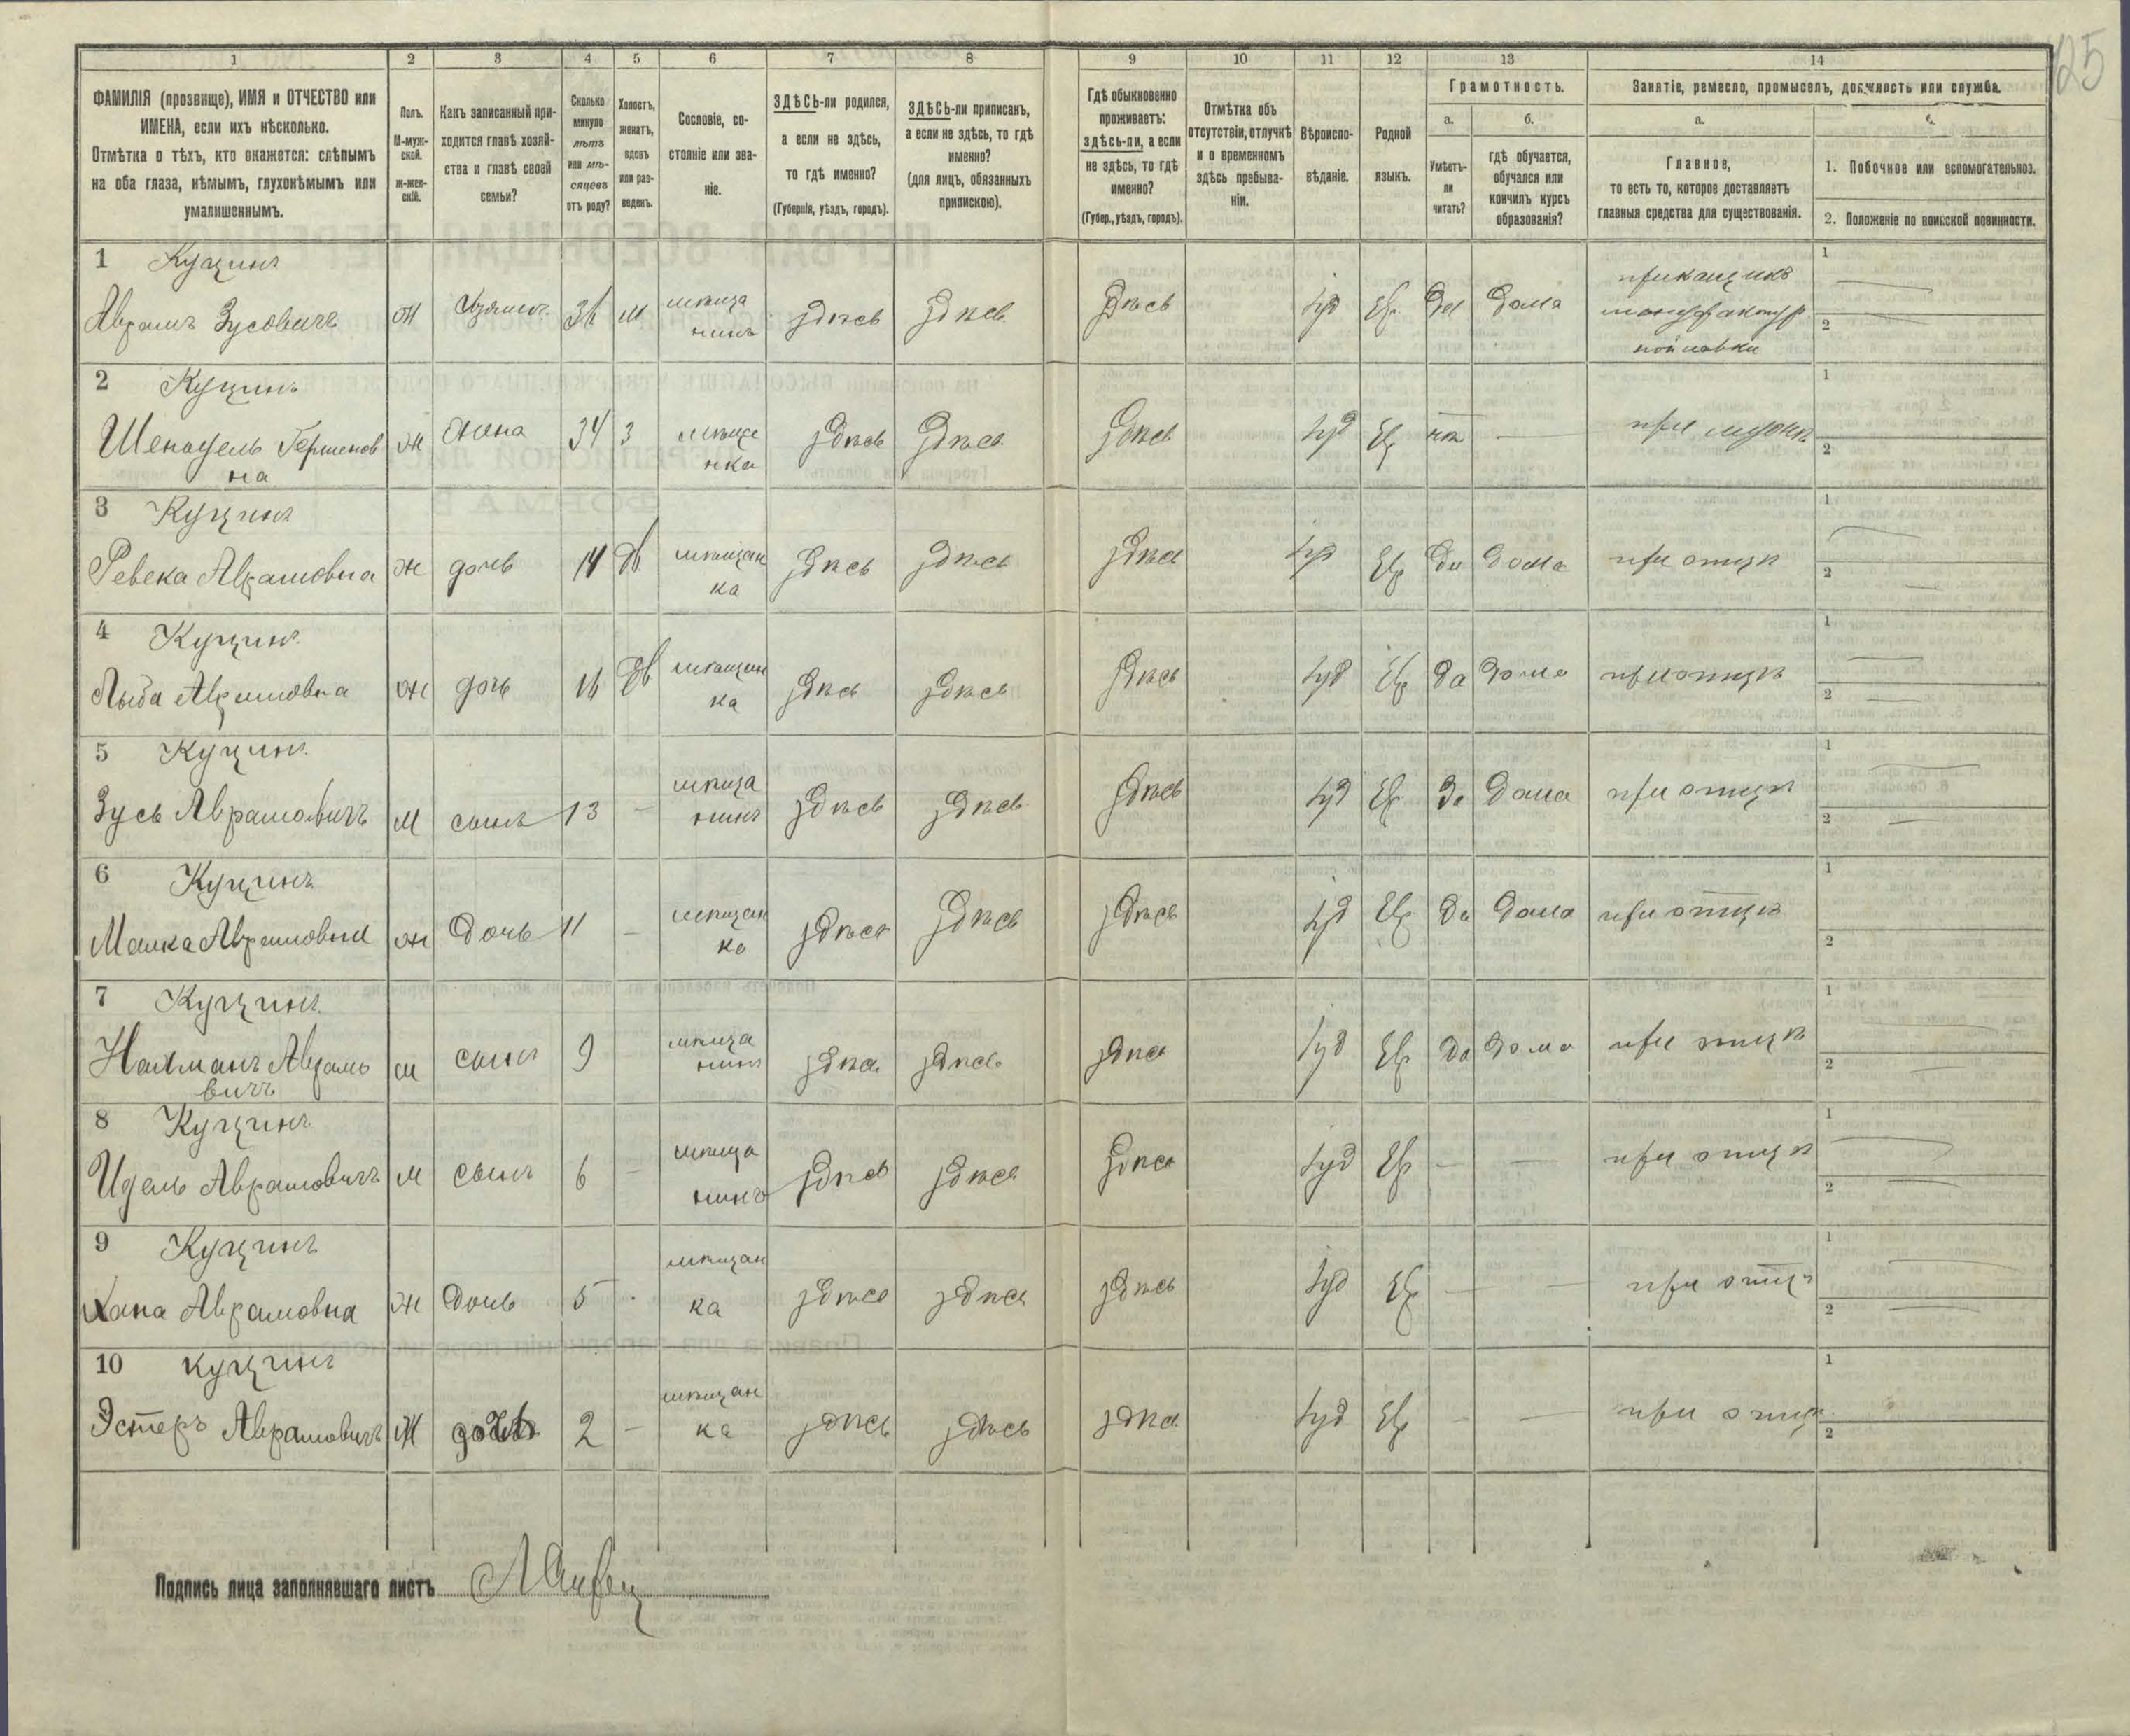 125
1 2 3 4 5 6 7 8 9 10 11 12 13 14
ФАМИЛІЯ (прозвище), ИМЯ и ОТЧЕСТВО или
ИМЕНА, если ихъ нѣсколько.
Отмѣтка о тѣхъ, кто окажется: слѣпымъ
на оба глаза, нѣмымъ, глухонѣмымъ или
умалишеннымъ.
Полъ.
М-муж-
ской.
ж-жен-
скій.
Какъ записанный при-
ходится главѣ хозяй-
ства и главѣ своей
семьи?
Сколько
минуло
лѣтъ
или мѣ-
сяцевъ
отъ роду?
Холостъ,
женатъ,
вдовъ
или раз-
веденъ.
Сословіе, со-
стояніе или зва-
ніе.
ЗДѢСЬ-ли родился,
а если не здѣсь,
то гдѣ именно?
(Губернія, уѣздъ, городъ).
ЗДѢСЬ-ли приписанъ,
а если не здѣсь, то гдѣ
именно?
(для лицъ, обязанныхъ
припискою).
Гдѣ обыкновенно
проживаетъ:
здѣсь-ли, а если
не здѣсь, то гдѣ
именно?
(Губер., уѣздъ, городъ).
Отмѣтка объ
отсутствіи, отлучкѣ
и о временномъ
здѣсь пребыва-
ніи.
Вѣроиспо-
вѣданіе.
Родной
языкъ.
Грамотность.
а.
Умѣетъ-
ли
читать?
б.
гдѣ обучается,
обучался или
кончилъ курсъ
образованія?
Занятіе, ремесло, промыселъ, должность или служба.
а.
Главное,
то есть то, которое доставляетъ
главныя средства для существованія.
1. Побочное или вспомогательное.
2. Положеніе по воинской повинности.
1 Куцинъ
Аврамъ Зусовичъ М Хозяинъ 36 м мѣща
нинъ здѣсь здѣсь здѣсь Іуд Евр да дома прикащикъ
мануфактур
ной лавки
1
2
2 Куцинъ
Гершонов
на ж жена 34 з мѣща
нка здѣсь здѣсь здѣсь Іуд Евр нѣтъ — при мужѣ
1
2
3 Куцинъ
Ревека Аврамовна ж дочь дв мѣщан
ка здѣсь здѣсь здѣсь Іуд Евр да дома при отцѣ
1
2
4 Куцинъ
Аврамовна ж дочь 16 дв мѣщан
ка здѣсь здѣсь здѣсь Іуд Евр да дома при отцѣ
1
2
5 Куцинъ
Зусь Аврамовичъ м сынъ 13 — мѣща
нинъ здѣсь здѣсь здѣсь Іуд Евр да дома при отцѣ
1
2
6 Куцинъ
Малка Аврамовна ж дочь 11 — мѣщан
ка здѣсь здѣсь здѣсь Іуд Евр да дома при отцѣ
1
2
7 Куцинъ
Нахманъ Аврамо
вичъ м сынъ 9 мѣща
нинъ здѣсь здѣсь здѣсь Іуд Евр да дома при отцѣ
1
2
8 Куцинъ
Идель Аврамовичъ м сынъ 6 — мѣща
нинъ здѣсь здѣсь здѣсь Іуд Евр — — при отцѣ
1
2
9 Куцинъ
Хана Аврамовна ж дочь 5 мѣщан
ка здѣсь здѣсь здѣсь Іуд Евр — — при отцѣ
1
2
10 Куцинъ
Эстеръ Аврамовичъ ж дочь 2 — мѣщан
ка здѣсь здѣсь здѣсь Іуд Евр — — при отцѣ
1
2
Подпись лица заполнявшаго листъ